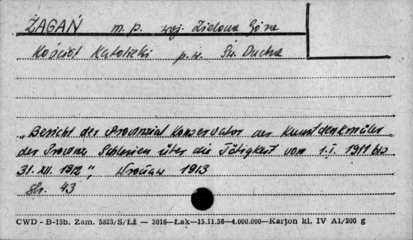 ŻAGAŃ m. p. woj. Zielona Góra
Kościół Katolicki p.w. Św. Ducha
„Bericht der Provinzial Konservator der Kunstdenkmäler
der Provinz Schlesien über die Tätigkeit vom 1.I. 1911 bis
31.XII. 1912", Wrocław 1913
Str. 43
CWD - B-15b. Zam. 5823/S/Łż — 3016—Łak—15.11.56—4.000.000—Karton kl. IV A1/200 g